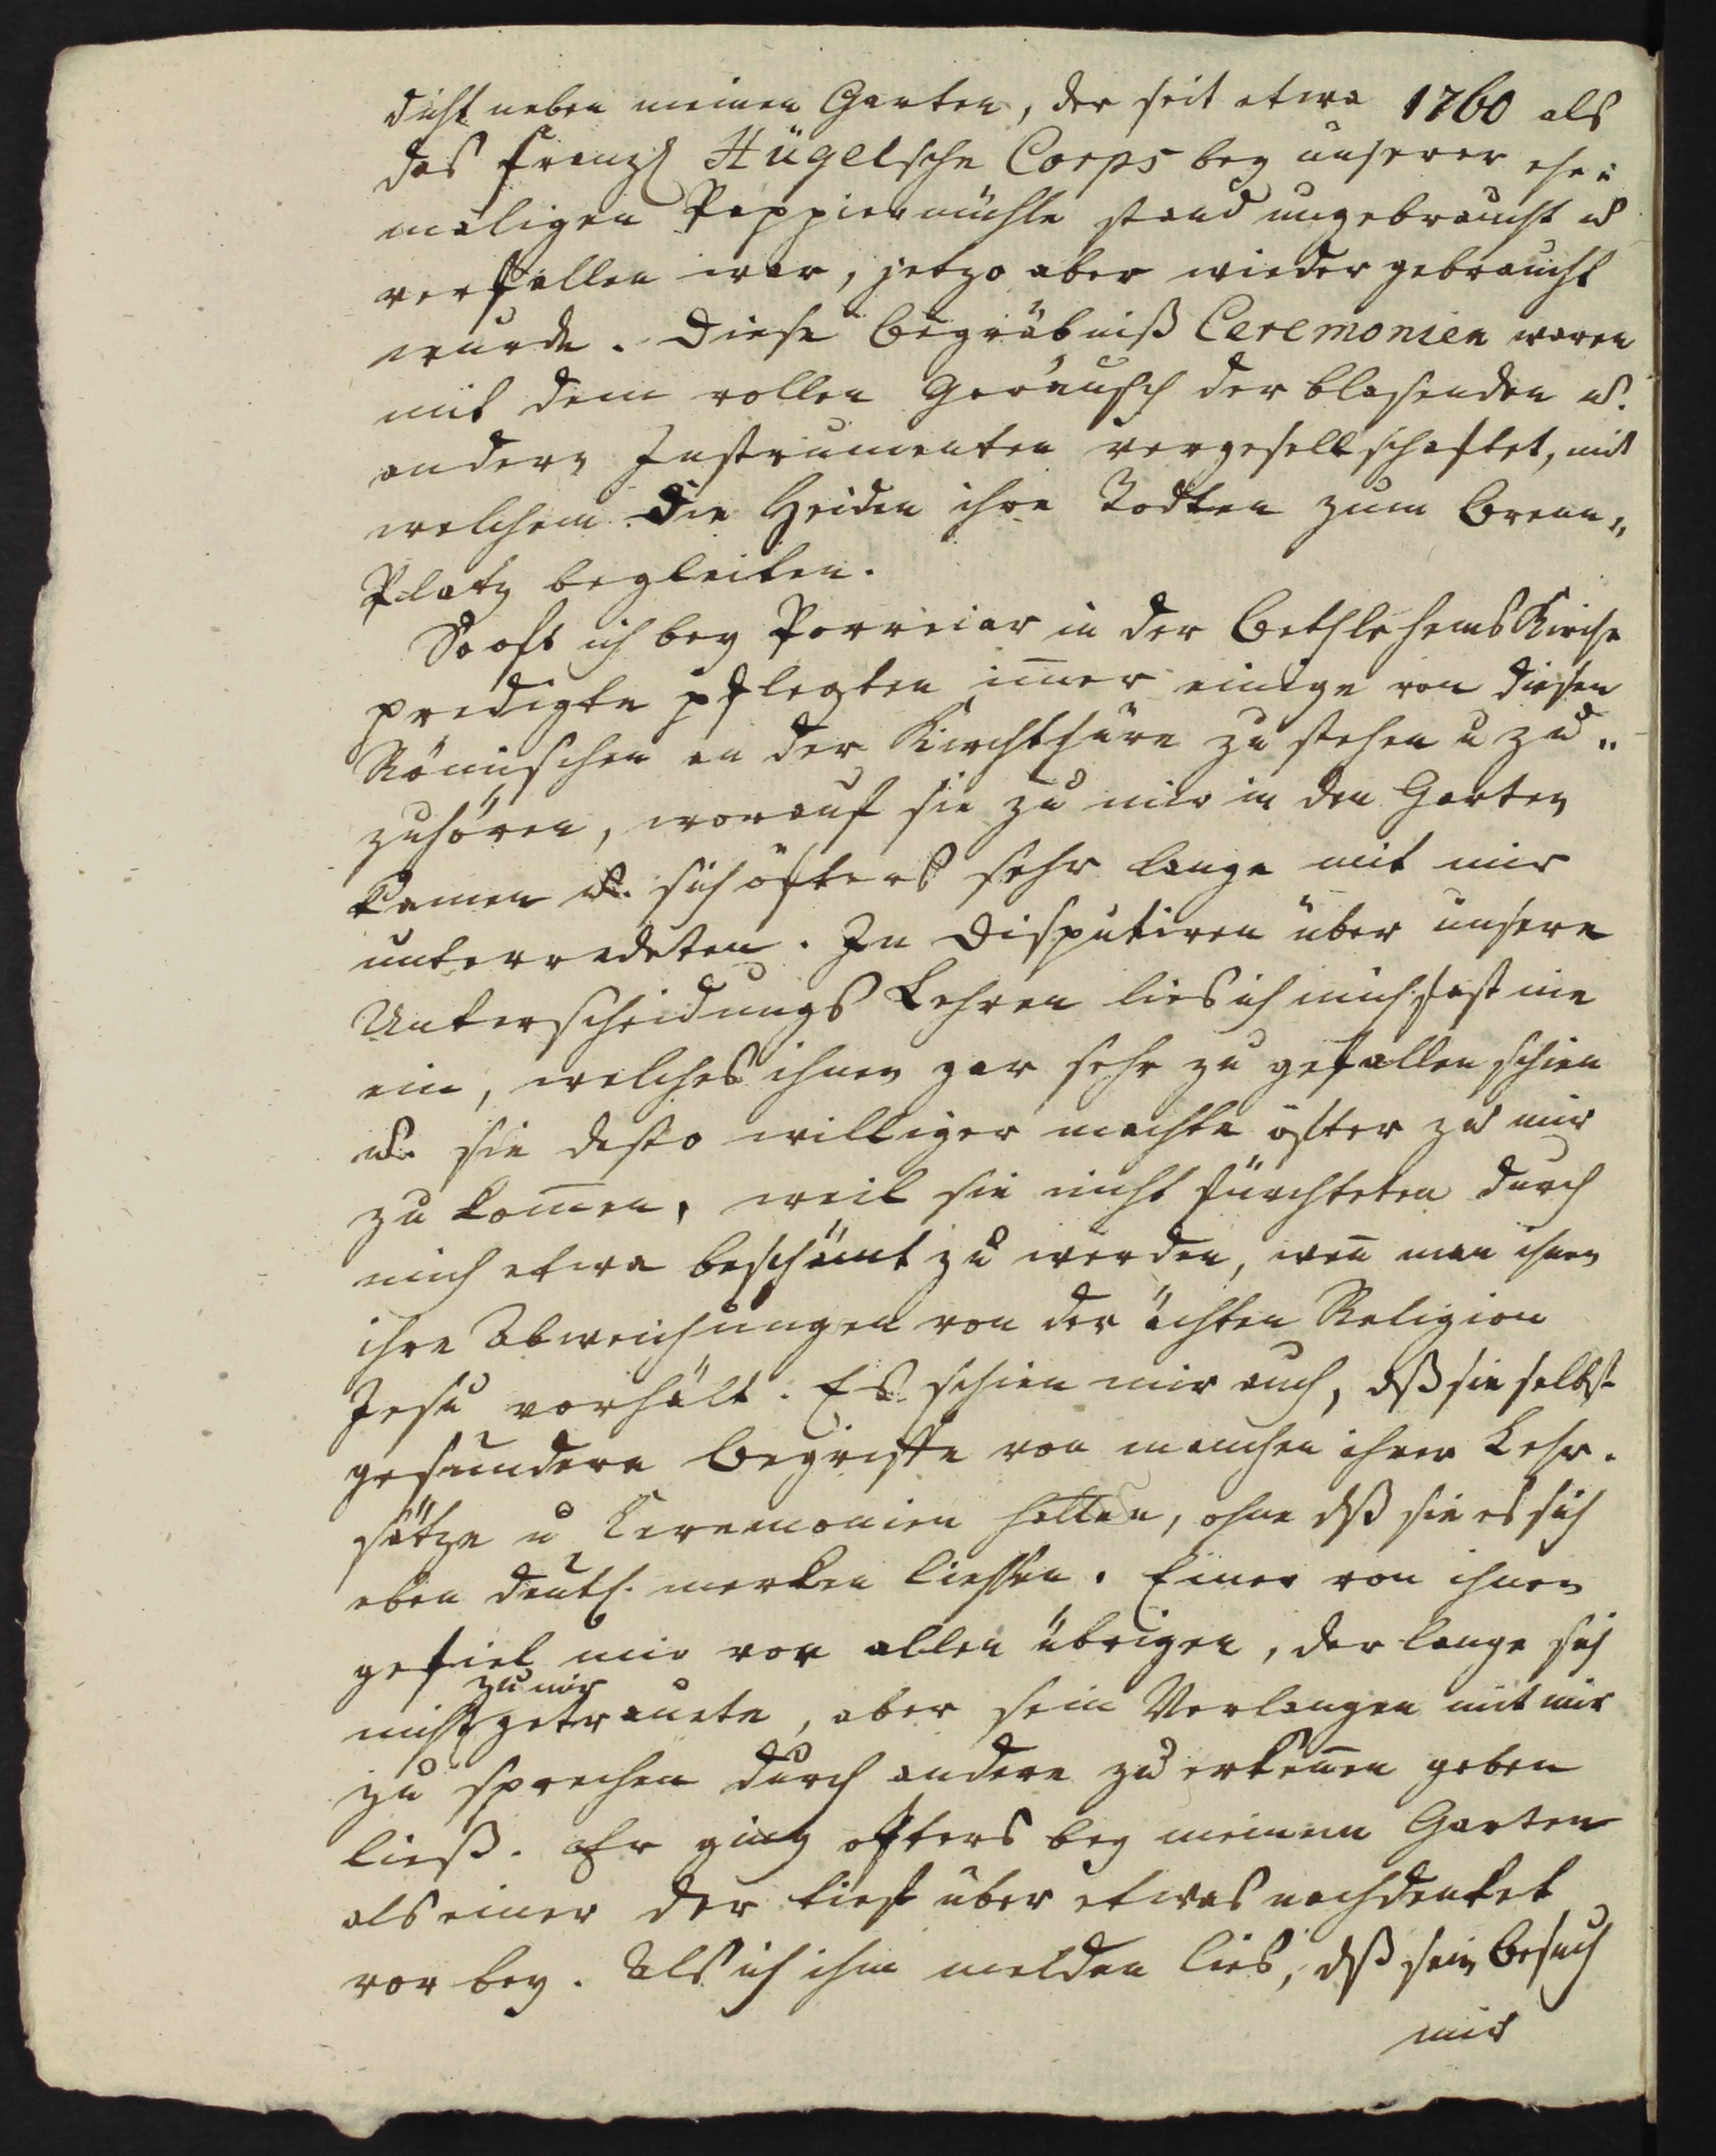 dicht neben meinen Garten, der seit etwa 1760 als
das franz. Hügelsche Corps bey unserer ehe=
maligen Pappiermühle stand ungebraucht u.
verfallen war, jetzo aber wieder gebraucht
wurde. Diese Begräbniß Ceremonien waren
mit dem vollen Geräusch der blasenden u.
andern Instrumenten vergesellschaftet, mit
welchem die Heiden ihre Todten zum Brenn=
Platz begleiten.
So oft ich bey Porreiar in der BethlehemsKirche
predigte pflegten im̄er einige von diesen
Römischen an der Kirchthüre zu stehen u zu=
zuhören, worauf sie zu mir in den Garten
kamen u. sich öfters sehr lange mit mir
unterredeten. In Disputiren über unsere
Unterscheidungs Lehren lies ich mich fast nie
ein, welches ihnen gar sehr zu gefallen schien
u. sie desto williger machte öfter zu mir
zu kom̄en, weil sie nicht fürchteten durch
mich etwa beschämt zu werden, weñ man ihnen
ihre Abweichungen von der ächten Religion
Jesu vorhält. Es schien mir auch, dß sie selbst
gesundere Begriffe von manchen ihrer Lehr=
sätze u Ceremonien hätten, ohne dß sie es sich
eben deutl. merken liessen. Einer von ihnen
gefiel mir vor allen übrigen, der lange sich
zu mir
nicht getrauete, aber sein Verlangen mit mir
zu sprechen durch andere zu erkeñen geben
ließ. Er ging öfters bey meinem Garten
als einer der tief über etwas nachdenket
vor bey. Als ich ihm melden lies, dß sein Besuch
mir